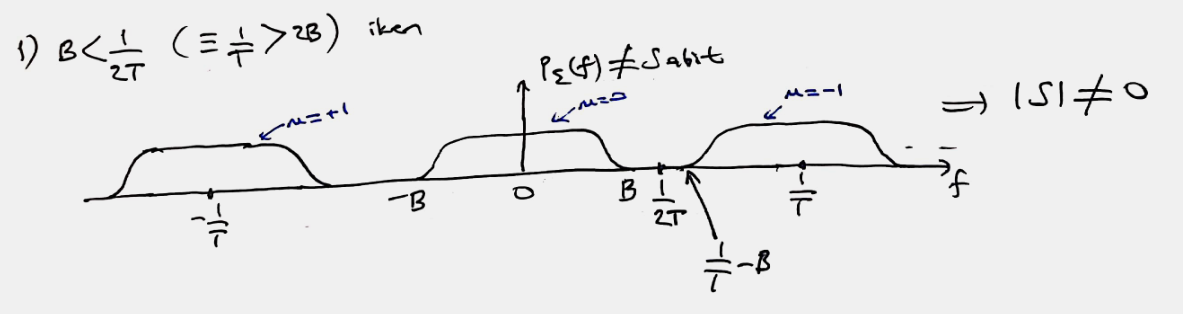 1) B < 1/2T (≡ 1/T > 2B) iken
P_Σ(f) ≠ Sabit
μ=+1 μ=0 μ=-1 ⟹ |S| ≠ 0
-1/T -B 0 B 1/2T 1/T f
1/T - B